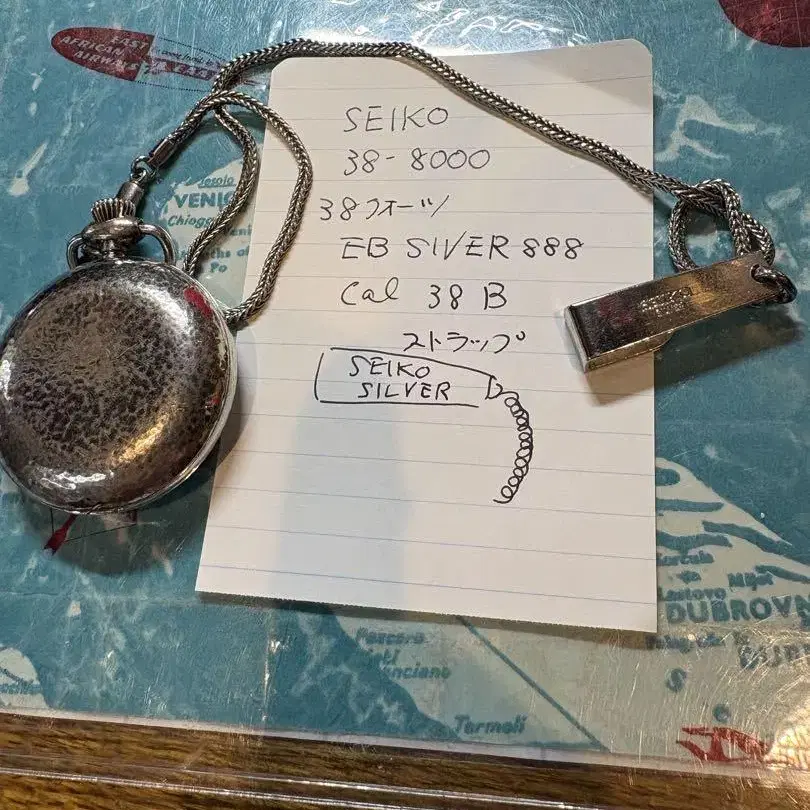 EAST
AFRICAN
AIRWAYS
VENIC
Chioggia
SEIKO
38-8000
38クオーツ
EB SIVER 888
Cal 38 B
ストラップ
SEIKO
SILVER
SEIKO
DUBROVN
Pescara
Termoli